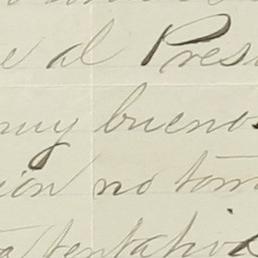 e al Pres
muy buenos
ion no tom
tentativa